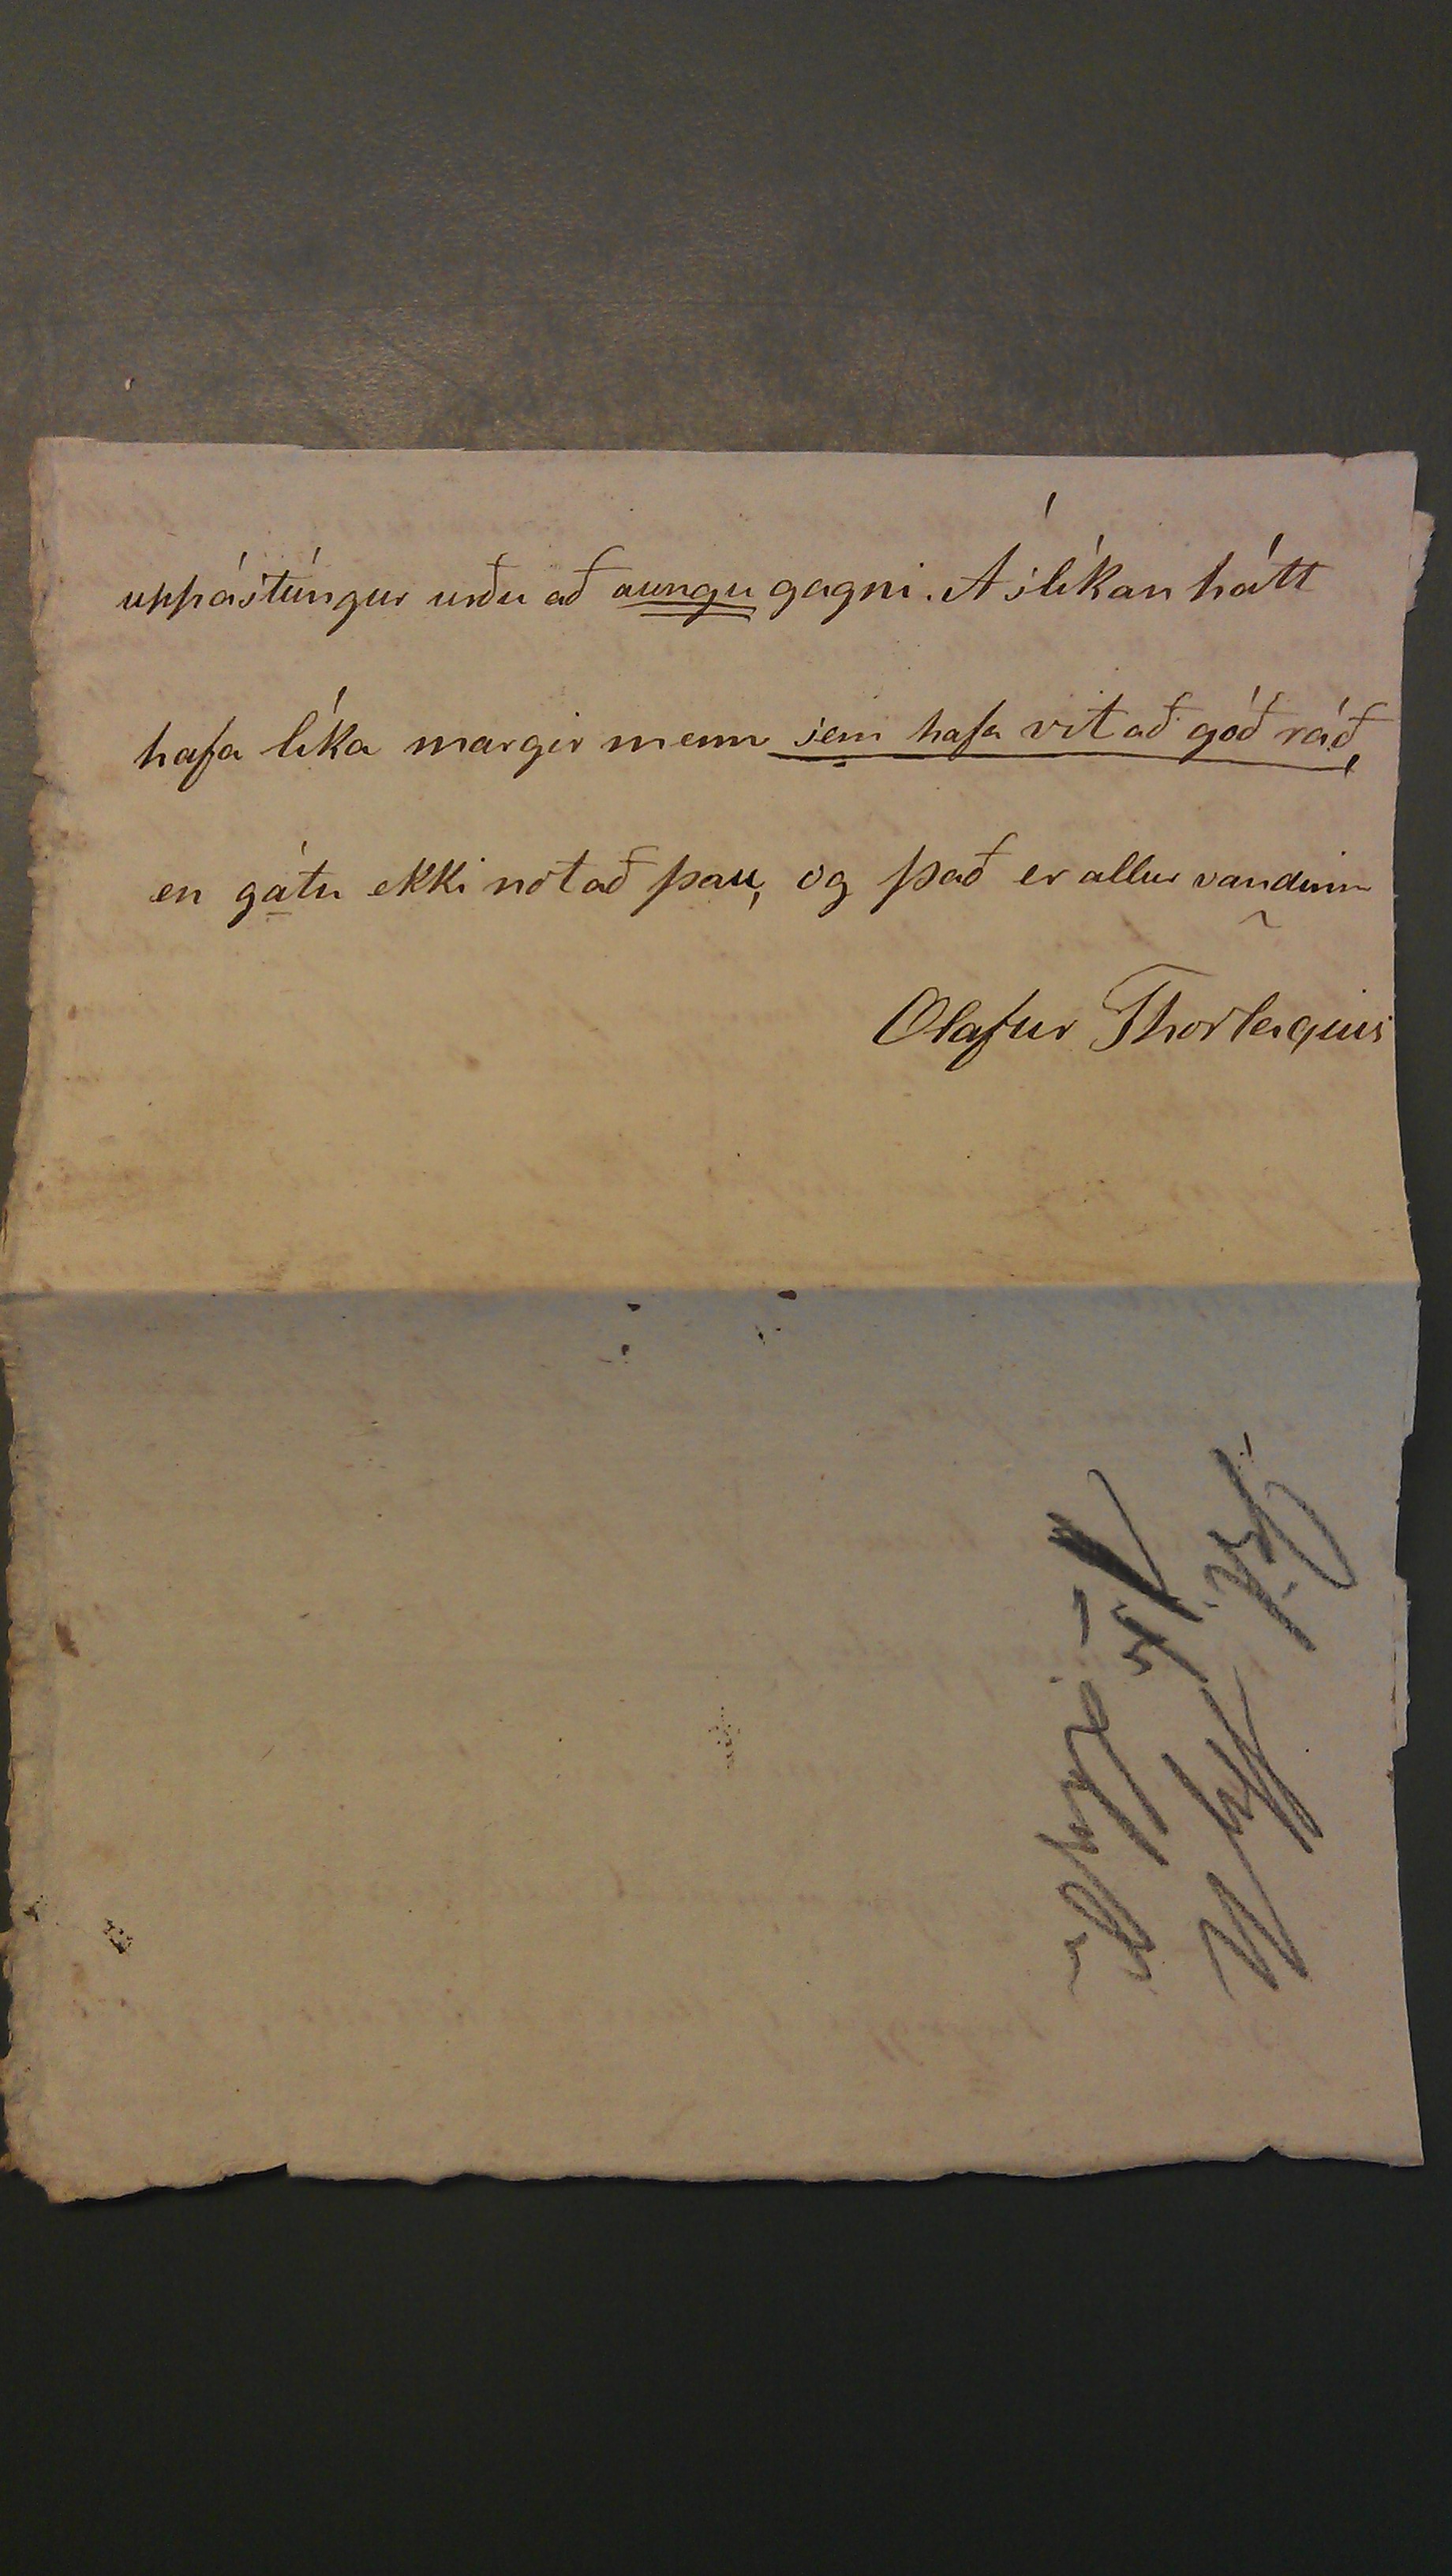 uppástúngur urðu að aungu gagni. Á slíkan hátt
hafa líka margir menn sem hafa vitað góð ráð,
en gátu ekki notað þau, og það er allur vandinn
Olafur Thorlacius